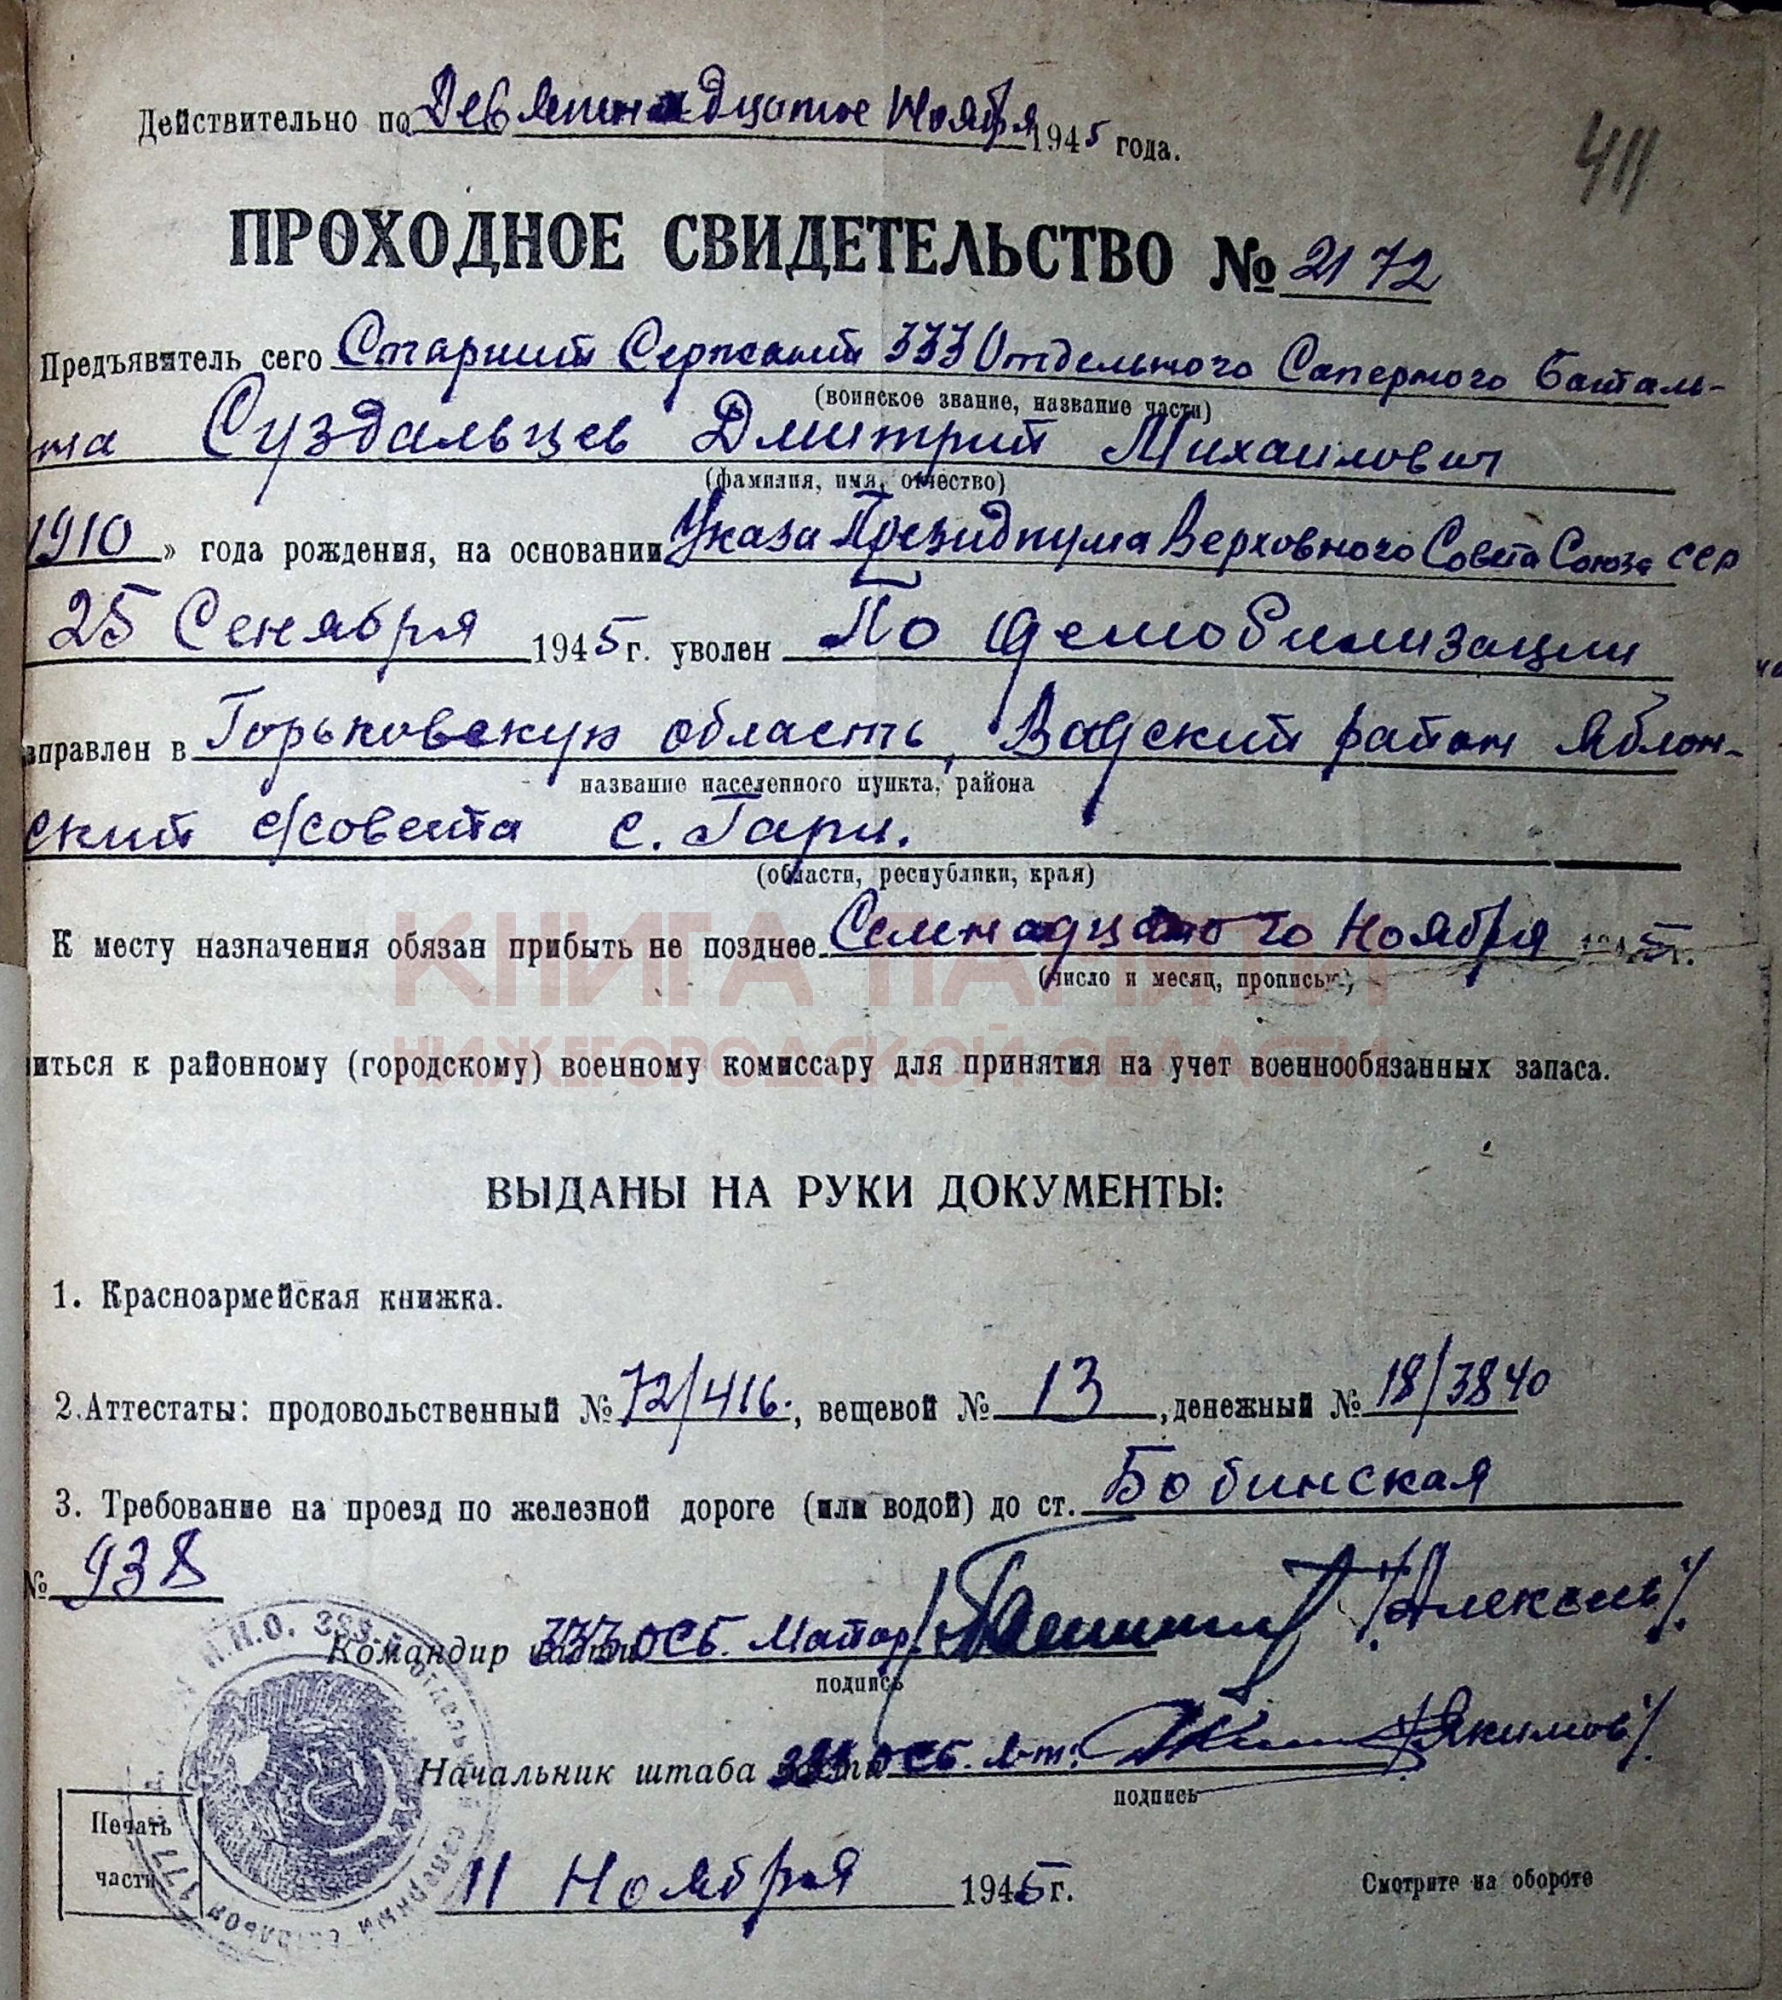 Действительно по Девятнадцатое Ноября 1945 года.
411
ПРОХОДНОЕ СВИДЕТЕЛЬСТВО № 2172
Предъявитель сего Старший Сержант 333 Отдельного Саперного баталь-
(воинское звание, название части)
на Суздальцев Дмитрий Михаилович
(фамилия, имя, отчество)
1910 » года рождения, на основании Указа Президиума Верховного Совета Союза ССР
25 Сентября 1945 г. уволен По демобилизации
аправлен в Горьковскую область, Вадский район Яблон-
название населенного пункта, района
ский с/совета с. Гари.
(области, республики, края)
К месту назначения обязан прибыть не позднее Семнадцатого Ноября 1945 г.
(число и месяц, прописью)
КНИГА ПАМЯТИ
НИЖЕГОРОДСКОЙ ОБЛАСТИ
иться к районному (городскому) военному комиссару для принятия на учет военнообязанных запаса.
ВЫДАНЫ НА РУКИ ДОКУМЕНТЫ:
1. Красноармейская книжка.
2. Аттестаты: продовольственный № 72/416., вещевой № 13, денежный № 18/3840
3. Требование на проезд по железной дороге (или водой) до ст. Бобинская
№ 938
Командир части 333 ОСБ. Майор
подпись
Начальник штаба части 333 ОСБ. л-т. /Якимов/
подпись
Печать
части
11 Ноября 1945 г.
Смотрите на обороте